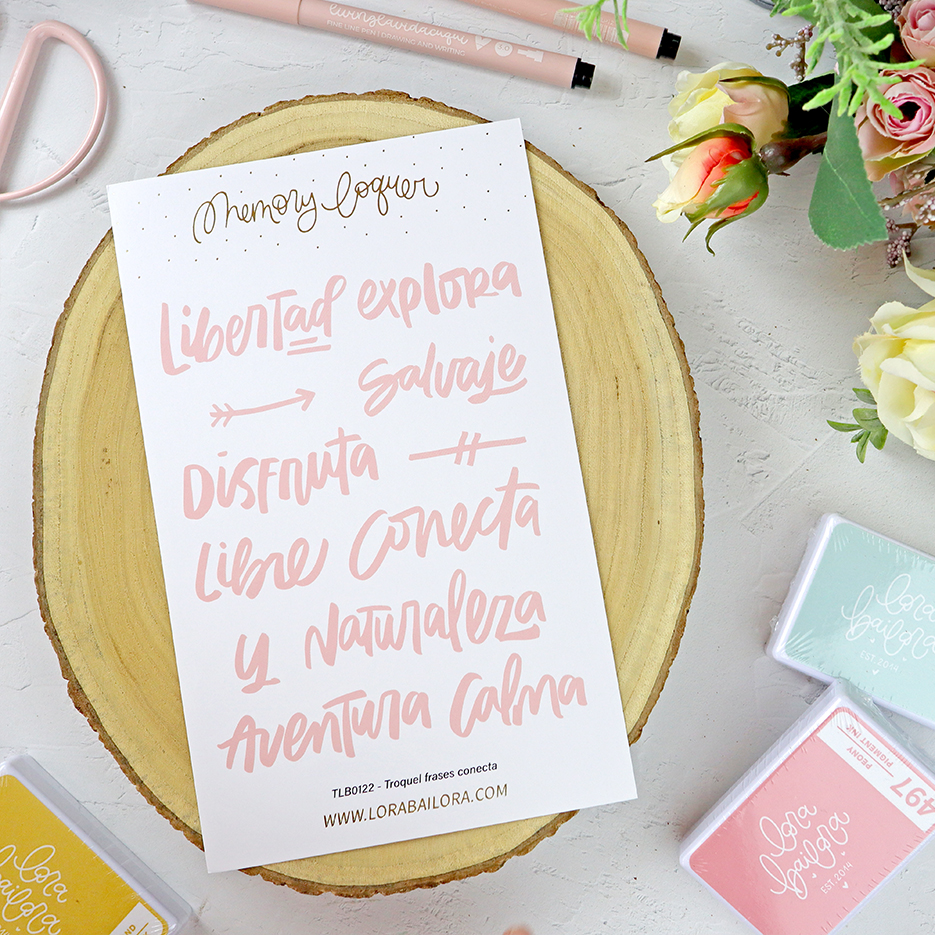 livinglavidacuqui
FINE LINE PEN | DRAWING AND WRITING
Memory loquer
Libertad explora
Salvaje
Disfruta
Libre Conecta
y Naturaleza
Aventura Calma
TLB0122 - Troquel frases conecta
WWW.LORABAILORA.COM
lora
bailora
EST. 2014
PEONY
PIGMENT INK
497
lora
bailora
EST. 2014
lora
bailora